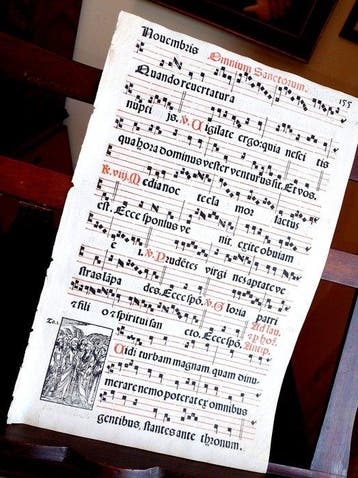 Nouembris Omnium Sanctorum. 155
Quando reuertatur a
nupti js. ℣. Uigilate ergo: quia nesci tis
qua hora dominus vester venturus sit. Et vos.
℟. viij. Media noc te cla mor factus
est. Ecce sponsus ve nit, exite obuiam
e i. ℣. Prudētes virgi nes aptate ve
stras lāpa des. Ecce spō. ℣. Gloria patri
⁊ fili o ⁊ spiritui san cto. Ecce spō. Ad lau.
⁊ p hos.
Antip.
To. i. Uidi turbam magnam, quam dinu
merare nemo poterat ex omnibus
gentibus, stantes ante thronum.